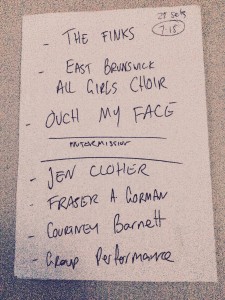 7:15
- THE FINKS
- EAST BRUNSWICK
ALL GIRLS CHOIR
- OUCH MY FACE
INTERMISSION
- JEN CLOHER
- FRASER A GORMAN
- COURTNEY Barnett
- Group Performance